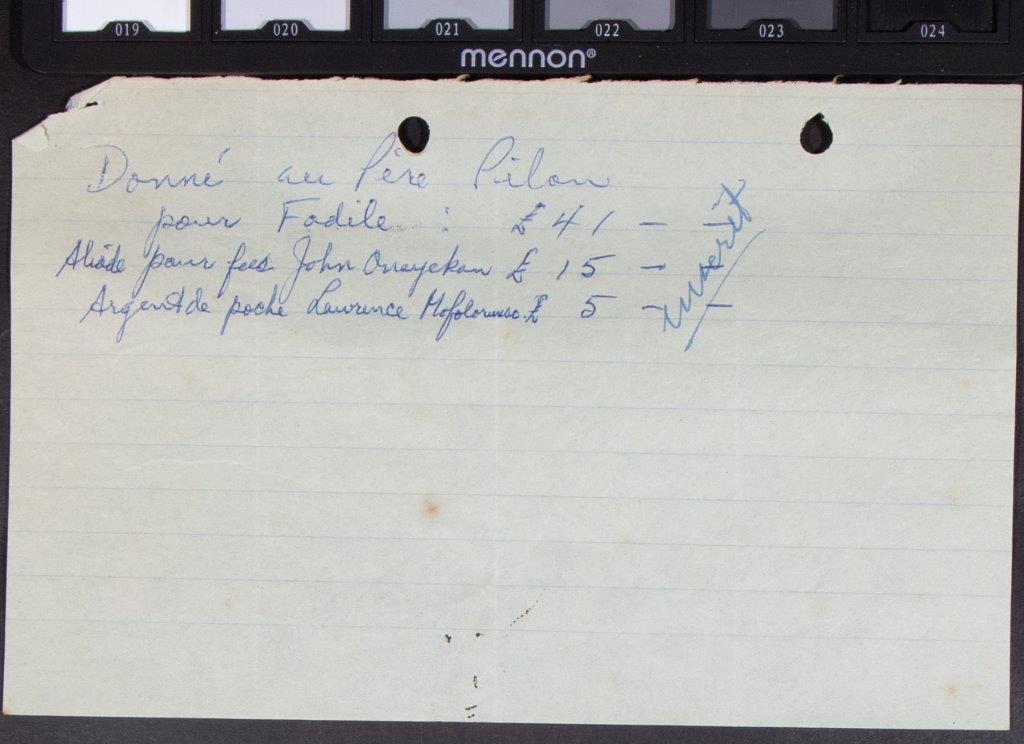 019 020 021 022 023 024
mennon®
Donné au Père Pilon
pour Fadile : £ 41 – –
Aliáde pour fees John Onayekan £ 15 – –
Argent de poche Lawrence Mofolorunso. £ 5 – –
inscrit